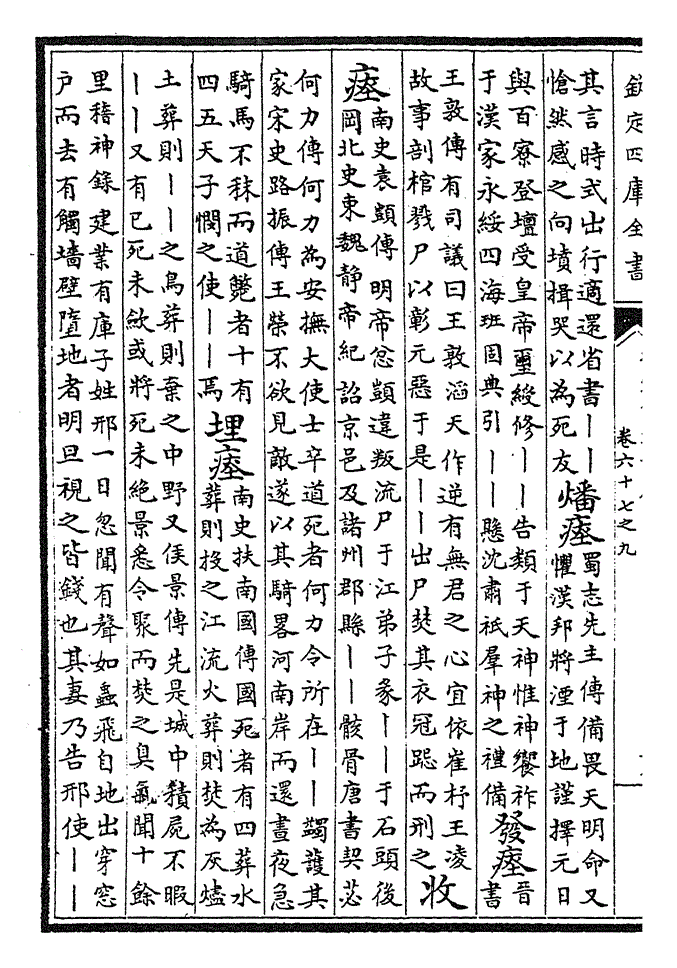 欽定四庫全書
卷六十七之九
其言時式出行適還省書丨丨
愴然感之向墳揖哭以為死友
燔瘞
蜀志先主傳備畏天明命又
懼漢邦將湮于地謹擇元日
與百寮登壇受皇帝璽綬修丨丨告類于天神惟神饗祚
于漢家永綏四海班固典引丨丨懸沈肅祗羣神之禮備
發瘞
晉
書
王敦傳有司議曰王敦滔天作逆有無君之心宜依崔杼王凌
故事剖棺戮尸以彰元惡于是丨丨出尸焚其衣冠跽而刑之
收
瘞
南史袁顗傳明帝忿顗違叛流尸于江弟子彖丨丨于石頭後
岡北史東魏靜帝紀詔京邑及諸州郡縣丨丨骸骨唐書契苾
何力傳何力為安撫大使士卒道死者何力令所在丨丨蠲護其
家宋史路振傳王榮不欲見敵遂以其騎畧河南岸而還晝夜急
騎馬不秣而道斃者十有
四五天子憫之使丨丨焉
埋瘞
南史扶南國傳國死者有四葬水
葬則投之江流火葬則焚為灰燼
土葬則丨丨之鳥葬則棄之中野又侯景傳先是城中積屍不暇
丨丨又有已死未斂或將死未絕景悉令聚而焚之臭氣聞十餘
里稽神錄建業有庫子姓邢一日忽聞有聲如蟲飛自地出穿窓
戶而去有觸墻壁墮地者明旦視之皆錢也其妻乃告邢使丨丨